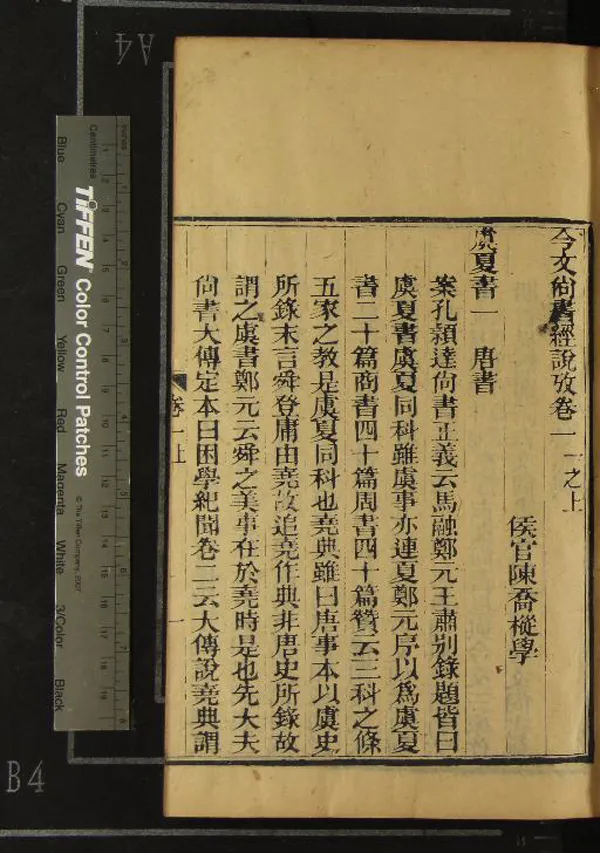 今文尚書經說攷卷一 一之上
侯官陳喬樅學
虞夏書一 唐書
案孔穎達尚書正義云馬融鄭元王肅別錄題皆曰
虞夏書虞夏同科雖虞事亦連夏鄭元序以爲虞夏
書二十篇商書四十篇周書四十篇贊云三科之條
五家之教是虞夏同科也堯典雖曰唐事本以虞史
所錄末言舜登庸由堯故追堯作典非唐史所錄故
謂之虞書鄭元云舜之美事在於堯時是也先大夫
尚書大傳定本曰困學紀聞卷二云大傳說堯典謂
卷一上
一
A4
B4
Centimetres
Inches
TIFFEN® Color Control Patches
© The Tiffen Company, 2007
Blue
Cyan
Green
Yellow
Red
Magenta
White
3/Color
Black